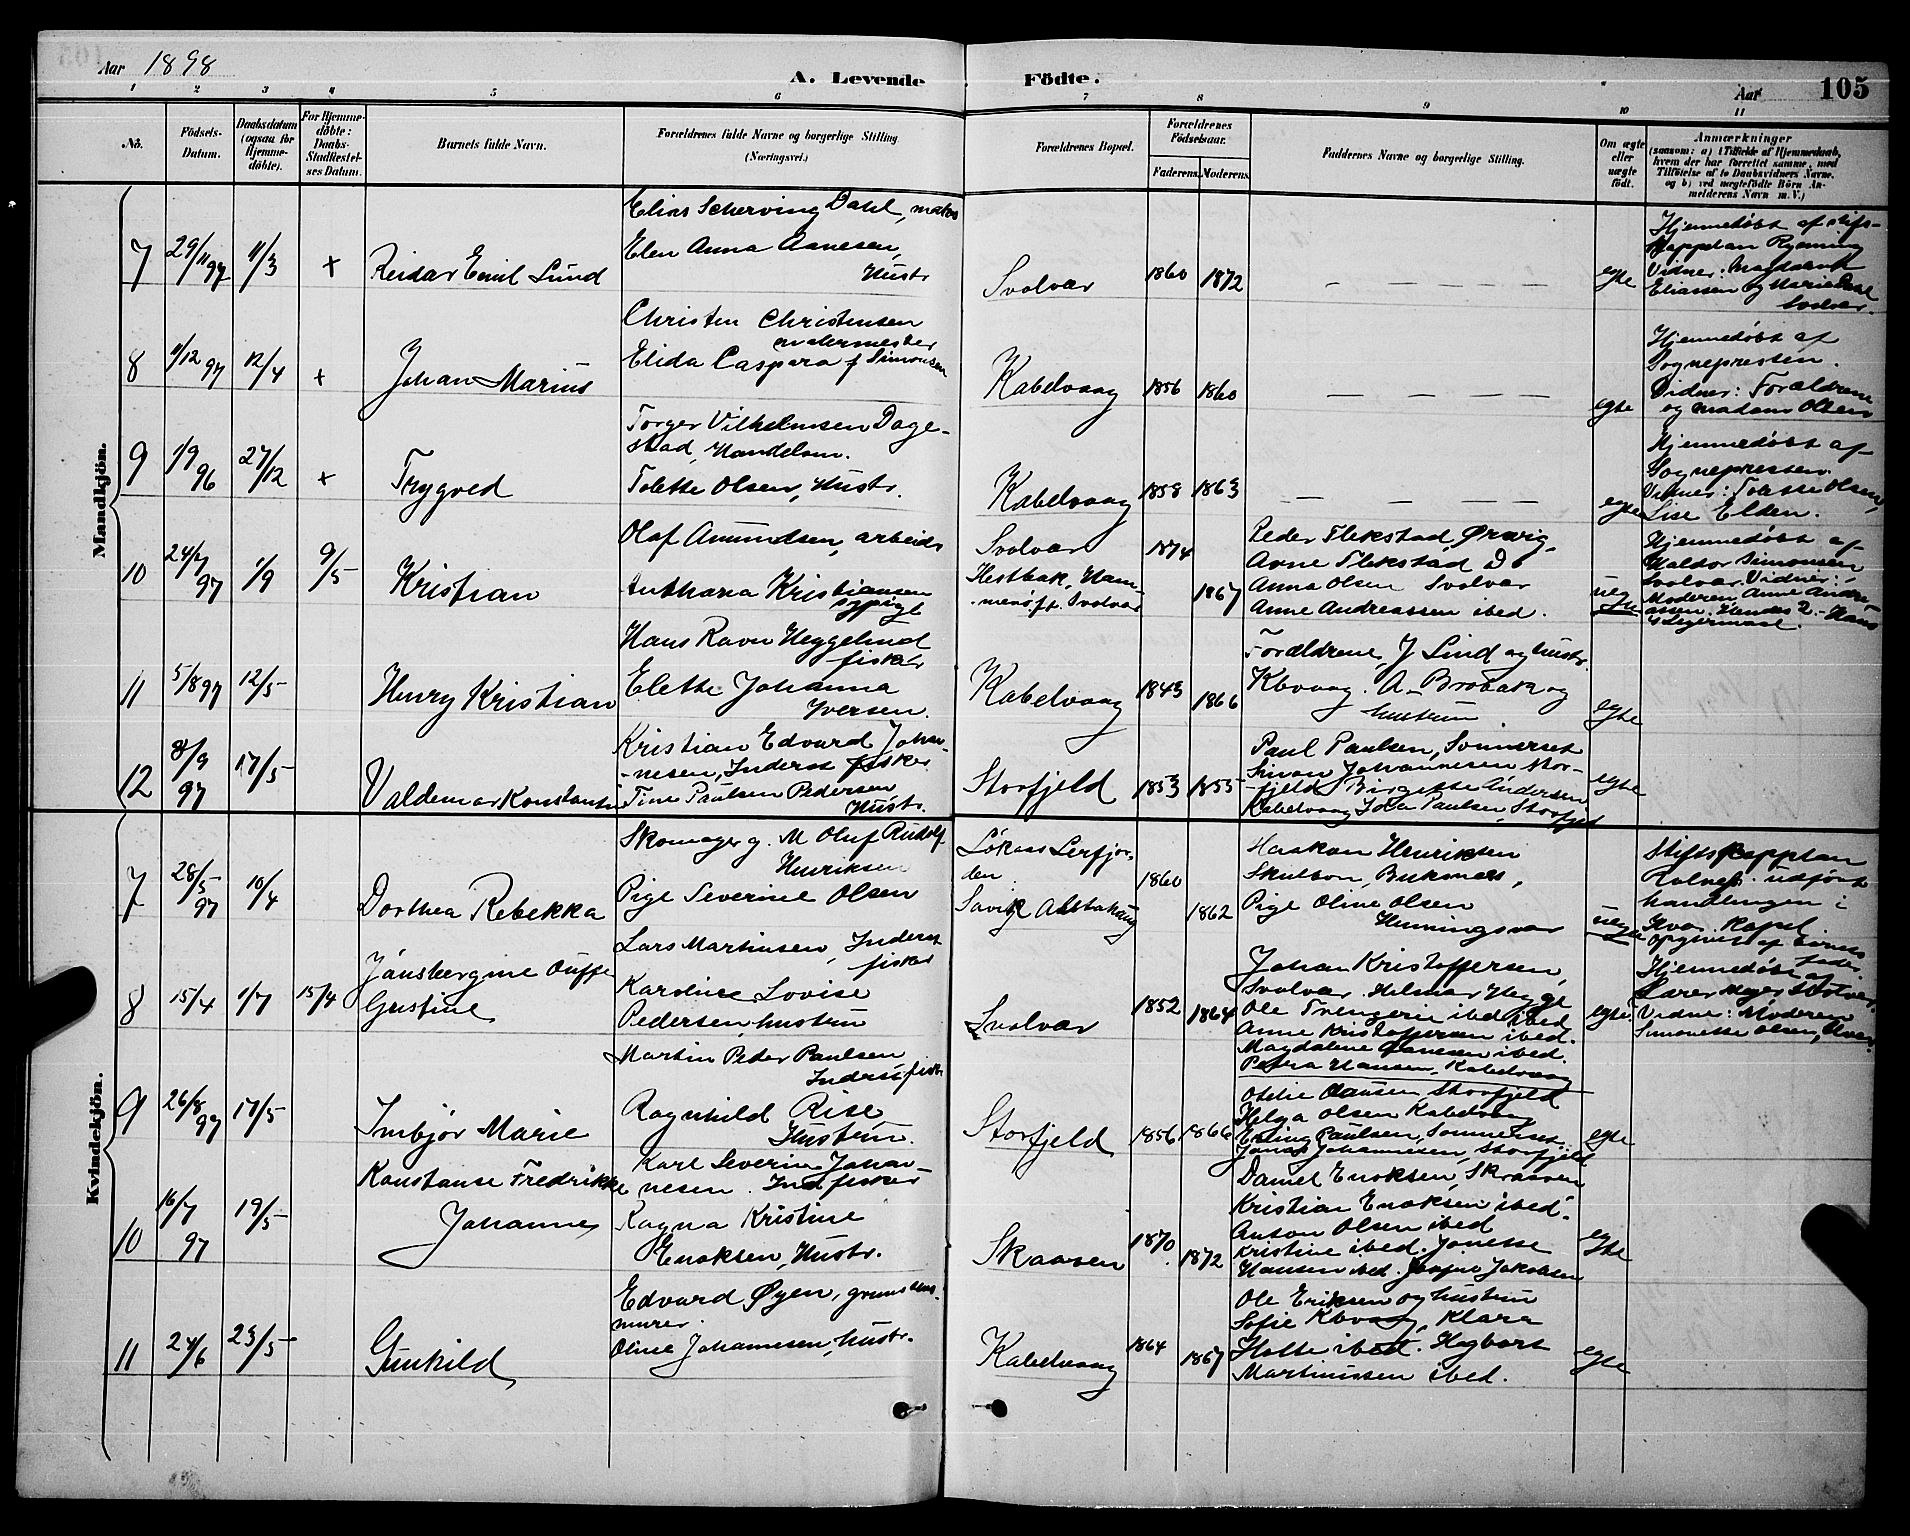 Aar 1898
A. Levende Födte.
Aar
105
1 2 3 4 5 6 7 8 9 10 11
No.
Födsels-Datum.
Daabsdatum (ogsaa for Hjemme-döbte).
For Hjemme-döbte: Daabs-Stadfæstel-ses Datum.
Barnets fulde Navn.
Forældrenes fulde Navne og borgerlige Stilling (Næringsvei.)
Forældrenes Bopæl.
Forældrenes Födselsaar.
Faderens. Moderens.
Faddernes Navne og borgerlige Stilling.
Om ægte eller uægte födt.
Anmærkninger
(saasom: a) i Tilfælde af Hjemmedaab,
hvem der har forrettet samme, med
Tilföielse af to Daabsvidners Navne.
og b) ved uægtefödte Börn An-
melderens Navn m. V.)
Mandkjön.
7 29/11 97 11/3 + Reidar Emil Lund
Elias Scherving Dahl,
Elen Anna Aanesen,
Hustr
Svolvær 1860 1872 — — — — — egte
Hjemmedøbt af stifs-
kappelan Rynning
Vidner: Magdalena
Eliassen og Marie
Svolvær.
8 11/12 97 12/4 + Johan Marius
Christen Christensen
Elida Caspara f Simonsen
Kabelvaag 1856 1860 — — — — — egte
Hjemmedøbt af
Sognepresten.
Vidner: Forældrene
og madam Olsen
9 1/9 96 27/12 + Trygved
Torger Vilhelmsen Dage-
stad, Handelsm.
Tolette Olsen, Hustr.
Kabelvaag 1858 1863 — — — — — egte
Hjemmedøbt af
Sognepresten.
Vidner: Tolette Olsen,
Lise Elden.
10 24/7 97 1/9 9/5 Kristian
Olaf Amundsen, arbeids
Anthana Kristiansen
Svolvær 1874
Hestbak, Ham-
merøft. Svolvær 1867
Peder Flekstad Ørsvig,
Arne Flekstad Do
Anna Olsen Svolvær
Anne Andreassen ibed.
uegte
Hjemmedøbt af
Haldor Simonsen
Svolvær. Vidner:
Moderen Anne Andre-
assen. Hendes 2. Hans
1 Leiermaal.
11 5/8 97 12/5 Henry Kristian
Hans Ravn Heggelund
fisker
Elette Johanna
Iversen.
Kabelvaag 1843 1866
Forældrene, J Lind og hustr.
Kbvaag. A. Brobak og
hustrun.
egte
12 8/9 97 17/5 Valdemar Konstantin
Kristian Edvard Johan-
-nesen, Inderst fisker
Tine Paulsen Pedersen
Hustr.
Storfjeld 1853 1855
Paul Paulsen, Sommerset
Simon Johannesen Stor-
-fjeld Birgitte Andersen
Kabelvaag Paulsen, Storfjel
egte
Kvindekjön.
7 28/5 97 10/4 Dorthea Rebekka
Skomager g. M Oluf Rudolf
Henriksen
Pige Severine Olsen
Løkaas Lerfjor-
den 1860
Alstahaug 1862
Haakon Henriksen
Skutbon, Buksnæs,
Pige Oline Olsen
Henningsvær
uegte
Stifts Kappelan
udført
handlingen i
Kapel.
opgivet af barnets
fader
8 15/4 1/7 15/4 Jansbergine Ouffe
Gustine
Lars Martinsen, Inderst
fisker
Karoline Lovise
Pedersen hustru
Svolvær 1852 1864
Johan Kristoffersen,
Svolvær. Helmar Hegge
Ole Trengerie ibed ibed
Anne Kristoffersen ibed.
Magdalene Hansen ibed.
Petra Hansen, Kabelvaag
egte
Hjemmedøbt af
Lærer Meyer Svolvær.
Vidne: Moderen
Simonette Olsen,
9 26/8 97 17/5 Imbjør Marie
Martin Peder Paulsen
Indersfisk
Ragnhild Rise,
Hustru.
Storfjeld 1856 1866
Otelie Hansen, Storfjeld
Helga Olsen Kabelvaag
Erling Paulsen, Sommerset
Jonas Johannesen, Storfjeld
egte
10 16/7 97 19/5 Konstanse Fredrikke
Johanne
Karl Severin Johan-
nesen. Indfisker
Ragna Kristine
Enoksen, Hustr.
Skaaven 1870 1872
Daniel Enoksen, Skraaven
Kristian Enoksen ibed.
Anton Olsen ibed
Kristine ibed. Jonette
Hansen ibed. Jakobsen
egte
11 24/6 23/5 Gunhild
Edvard Øyen,
murer.
Oline Johannesen, Hustr.
Kabelvaag 1864 1867
Ole Eriksen og hustru
Sofie Kbvaag, Klara
Holte ibed. Hegbart
Martinussen ibed.
egte